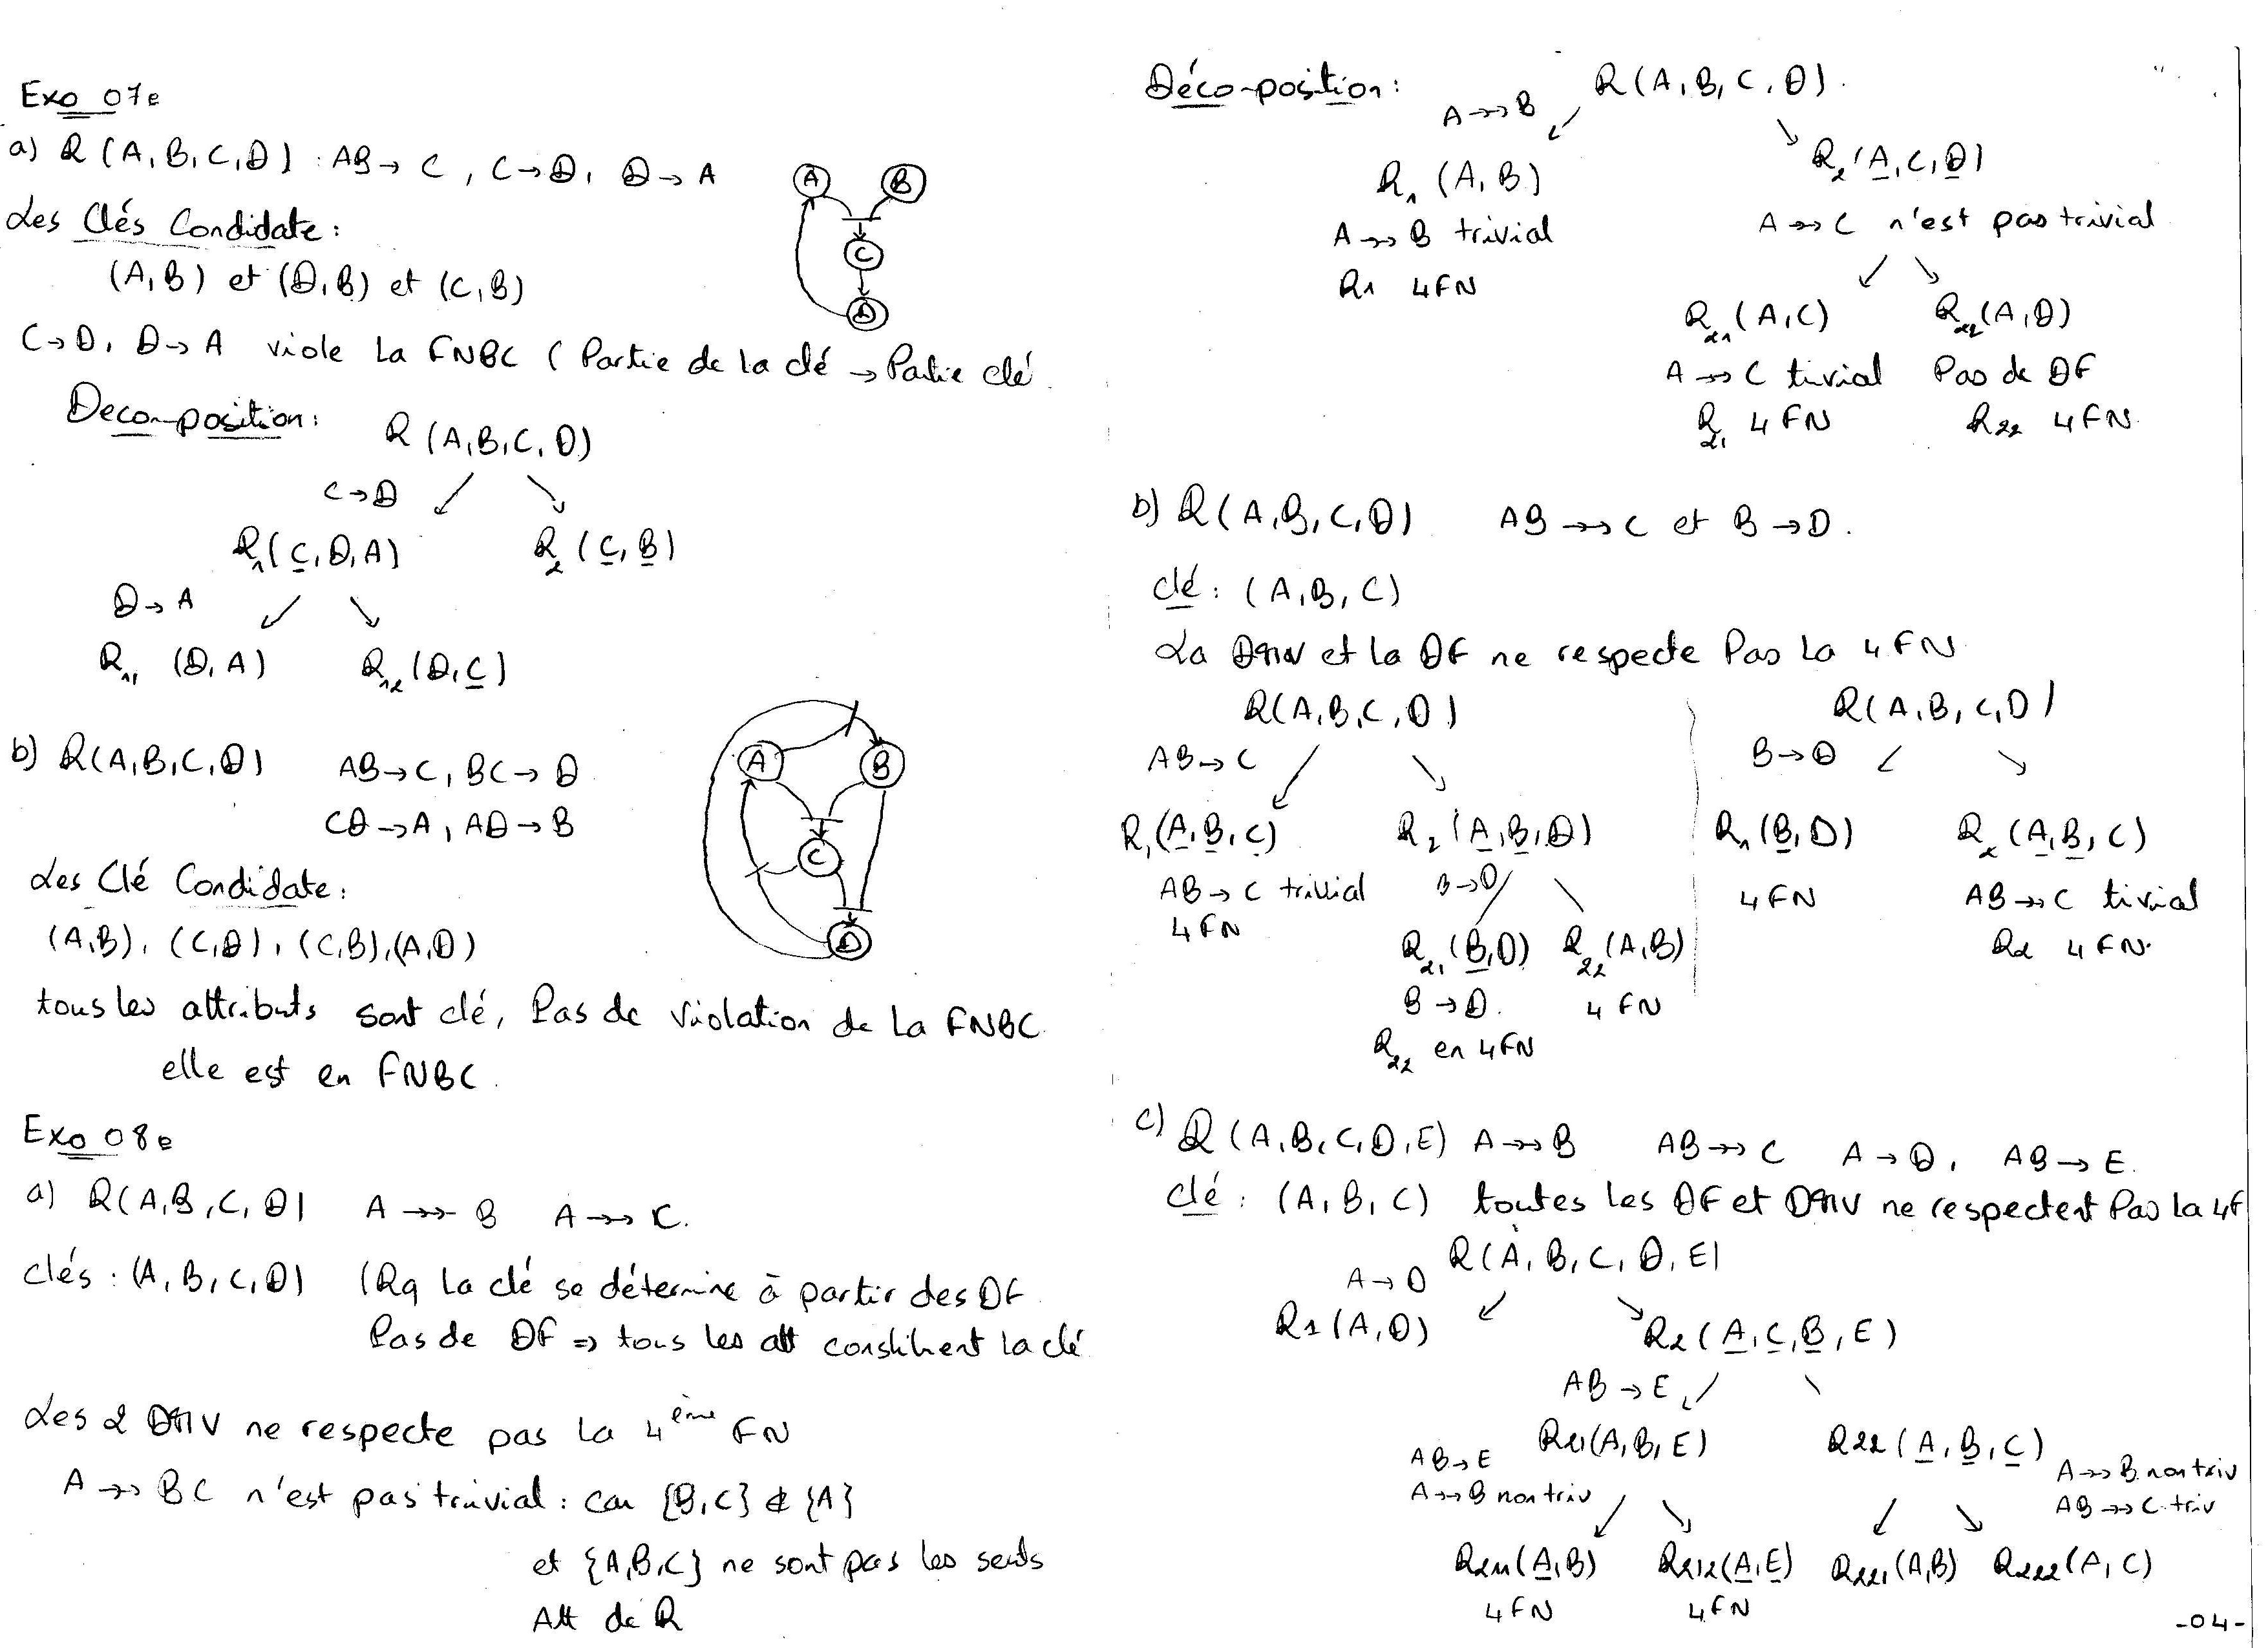 Exo 07e
a) R (A, B, C, D) : AB → C , C → D, D → A
Les Clés Condidate :
(A, B) et (D, B) et (C, B)
A B C D
C → D, D → A viole La FNBC ( Partie de la clé → Partie clé.
Décomposition : R (A, B, C, D)
C → D
R1 (C, D, A) R2 (C, B)
D → A
R11 (D, A) R12 (D, C)
b) R(A, B, C, D) AB → C, BC → D
CD → A, AD → B
Les Clé Condidate :
(A, B), (C, D), (C, B), (A, D)
A B C D
tous les attributs sont clé, Pas de violation de La FNBC.
elle est en FNBC.
Exo 08e
a) R(A, B, C, D) A →→ B A →→ C.
clés : (A, B, C, D) (Rq La clé se détermine à partir des DF
Pas de DF ⇒ tous les att constituent la clé
Les 2 DMV ne respecte pas la 4ème FN
A →→ BC n'est pas trivial : car {B, C} ⊄ {A}
et {A, B, C} ne sont pas les seuls
Att de R
Décomposition : R (A, B, C, D).
A →→ B
R1 (A, B) R2 (A, C, D)
A →→ B trivial A →→ C n'est pas trivial
R1 4FN
R21 (A, C) R22 (A, D)
A →→ C trivial Pas de DF
R21 4FN R22 4FN.
b) R (A, B, C, D) AB →→ C et B → D.
clé : (A, B, C)
La DMV et la DF ne respecte Pas La 4FN.
R(A, B, C, D) R(A, B, C, D)
AB → C B → D
R1 (A, B, C) R2 (A, B, D) R1 (B, D) R2 (A, B, C)
AB → C trivial B → D 4FN AB →→ C trivial
4FN R2 4FN.
R21 (B, D) R22 (A, B)
B → D. 4FN
R22 en 4FN
c) R (A, B, C, D, E) A →→ B AB →→ C A → D, AB → E.
clé : (A, B, C) toutes les DF et DMV ne respectent Pas la 4F
R(A, B, C, D, E)
A → D
R1 (A, D) R2 (A, C, B, E)
AB → E
R21(A, B, E) R22 (A, B, C)
AB → E A →→ B non triv
A →→ B non triv AB →→ C triv
R211 (A, B) R212 (A, E) R221 (A, B) R222 (A, C)
4FN 4FN
-04-